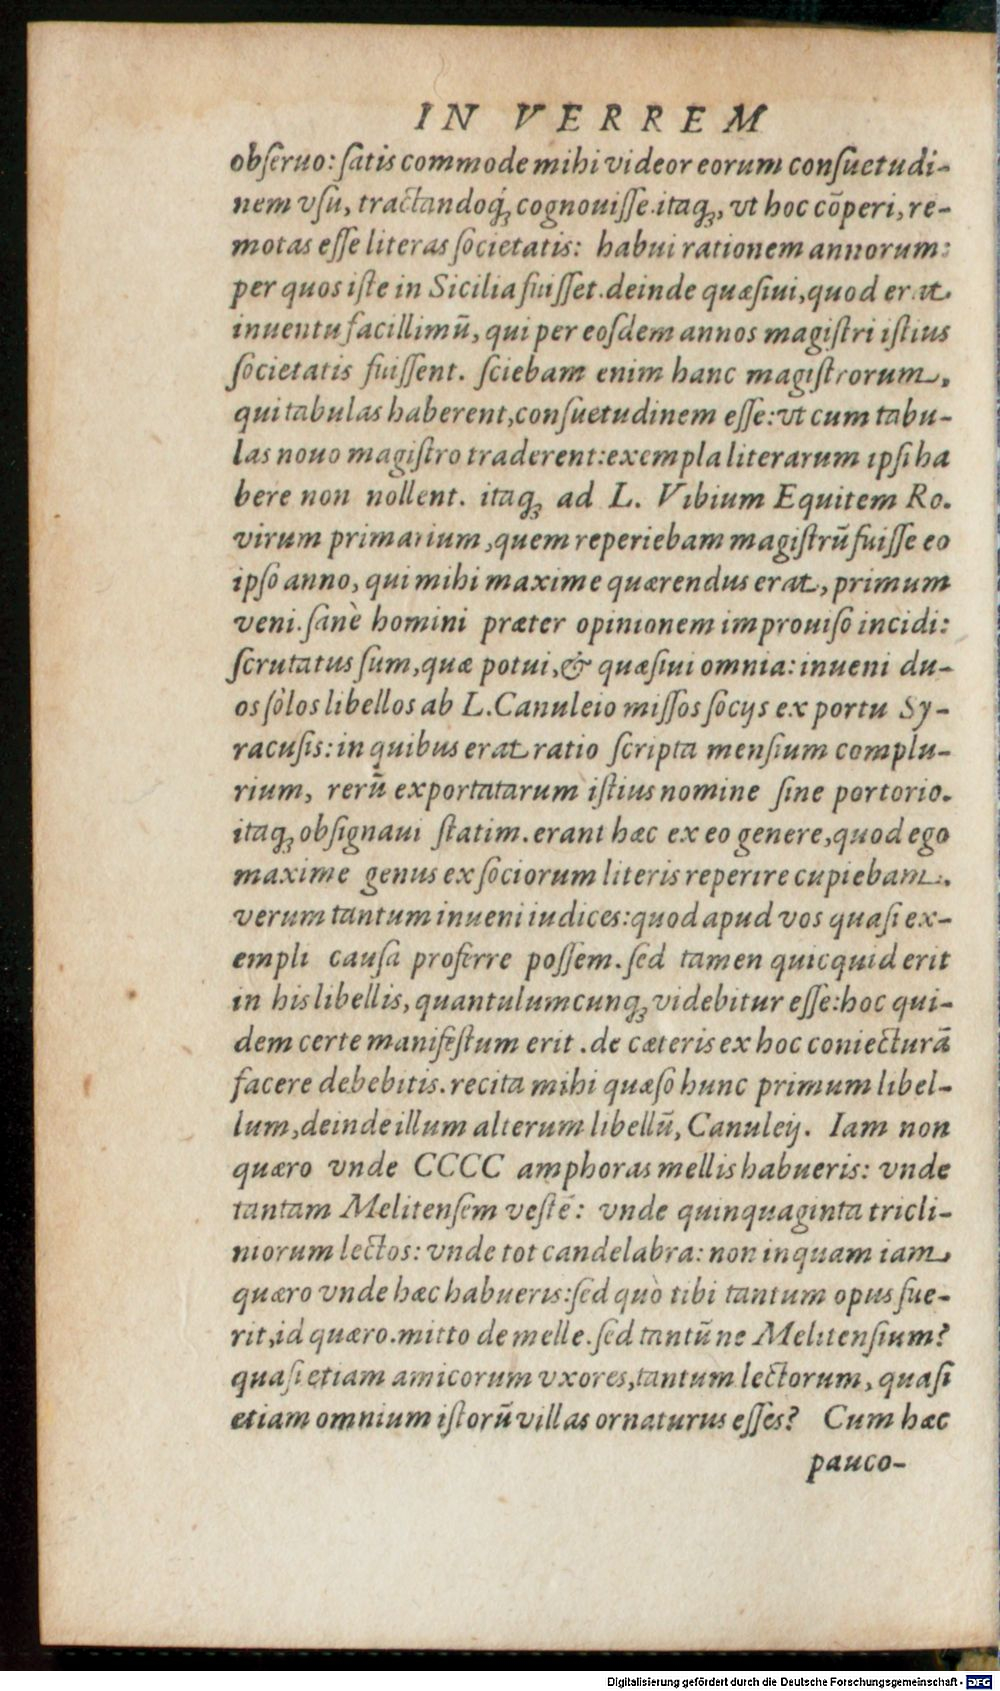 IN VERREM
obſeruo: ſatis commode mihi videor eorum conſuetudi-
nem vſu, tractandoq́ꝫ cognouiſſe. itaqꝫ, vt hoc cōperi, re-
motas eſſe literas ſocietatis: habui rationem annorum:
per quos iſte in Sicilia fuiſſet. deinde quæſiui, quod erat
inuentu facillimū, qui per eoſdem annos magiſtri iſtius
ſocietatis fuiſſent. ſciebam enim hanc magiſtrorum,
qui tabulas haberent, conſuetudinem eſſe: vt cum tabu-
las nouo magiſtro traderent: exempla literarum ipſi ha
bere non nollent. itaqꝫ ad L. Vibium Equitem Ro.
virum primarium, quem reperiebam magiſtrū fuiſſe eo
ipſo anno, qui mihi maxime quærendus erat, primum
veni. ſanè homini præter opinionem improuiſo incidi:
ſcrutatus ſum, quæ potui, & quæſiui omnia: inueni du-
os ſolos libellos ab L. Canuleio miſſos ſocijs ex portu Sy-
racuſis: in quibus erat ratio ſcripta menſium complu-
rium, rerū exportatarum iſtius nomine ſine portorio.
itaqꝫ obſignaui ſtatim. erant hæc ex eo genere, quod ego
maxime genus ex ſociorum literis reperire cupiebam.
verum tantum inueni iudices: quod apud vos quaſi ex-
empli cauſa proferre poſſem. ſed tamen quicquid erit
in his libellis, quantulumcunqꝫ videbitur eſſe: hoc qui-
dem certe manifeſtum erit. de cæteris ex hoc coniecturā
facere debebitis. recita mihi quæſo hunc primum libel-
lum, deinde illum alterum libellū, Canuleij. Iam non
quæro vnde CCCC amphoras mellis habueris: vnde
tantam Melitenſem veſtē: vnde quinquaginta tricli-
niorum lectos: vnde tot candelabra: non inquam iam
quæro vnde hæc habueris: ſed quò tibi tantum opus fue-
rit, id quæro. mitto de melle. ſed tantūne Melitenſium?
quaſi etiam amicorum vxores, tantum lectorum, quaſi
etiam omnium iſtorū villas ornaturus eſſes? Cum hæc
pauco-
Digitalisierung gefördert durch die Deutsche Forschungsgemeinschaft - DFG